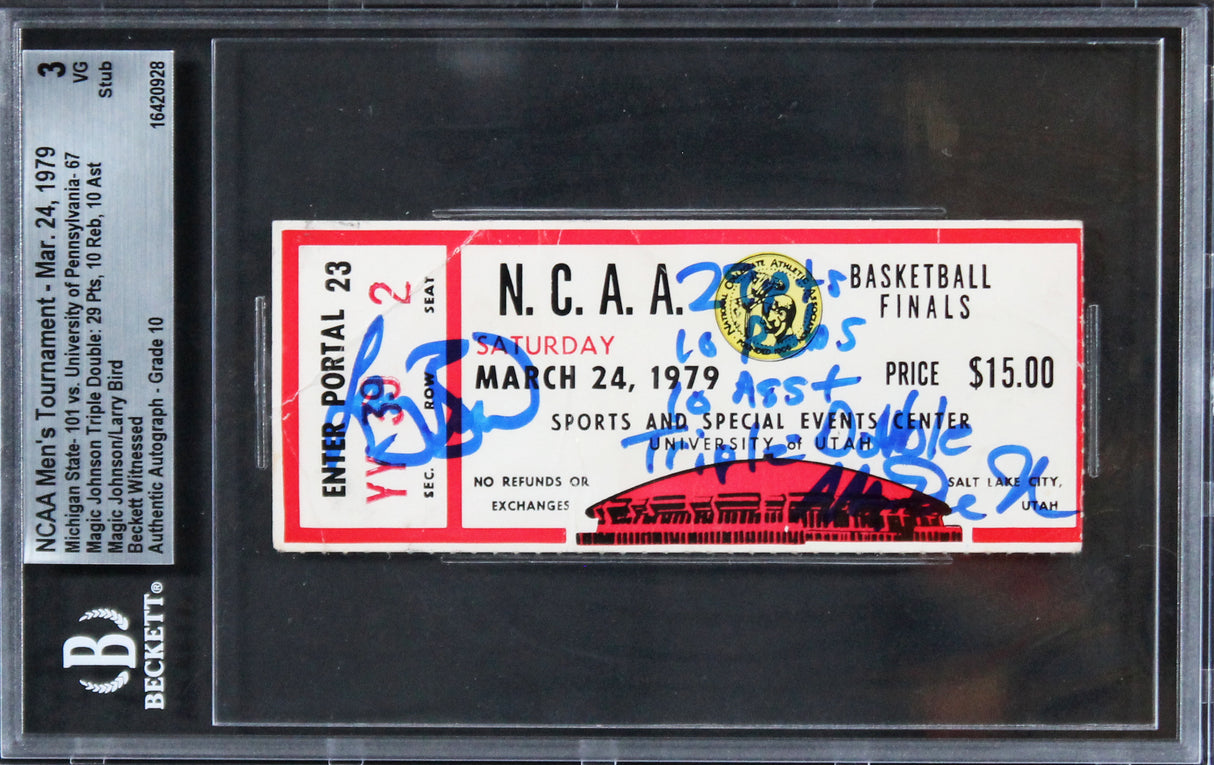 NCAA Men's Tournament - Mar. 24, 1979
Michigan State- 101 vs. University of Pennsylvania- 67
Magic Johnson Triple Double: 29 Pts, 10 Reb, 10 Ast
Magic Johnson/Larry Bird
Beckett Witnessed
Authentic Autograph - Grade 10
3
VG
Stub
16420928
B
BECKETT®
ENTER PORTAL 23
YY 39 2
SEC. ROW SEAT
N. C. A. A.
BASKETBALL
FINALS
SATURDAY
MARCH 24, 1979
PRICE $15.00
SPORTS AND SPECIAL EVENTS CENTER
UNIVERSITY of UTAH
NO REFUNDS OR
EXCHANGES
SALT LAKE CITY,
UTAH
Larry Bird
29 Pts
10 Rebs
10 Asst
Triple Double